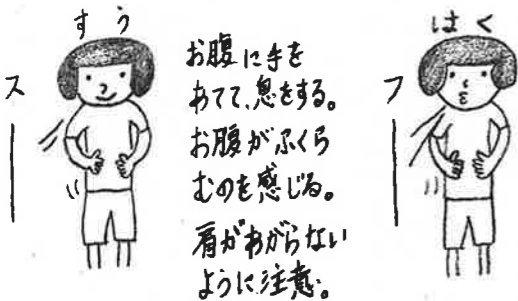 すう
スー
お腹に手を
あてて、息をする。
お腹がふくら
むのを感じる。
肩があがらない
ように注意。
はく
フー